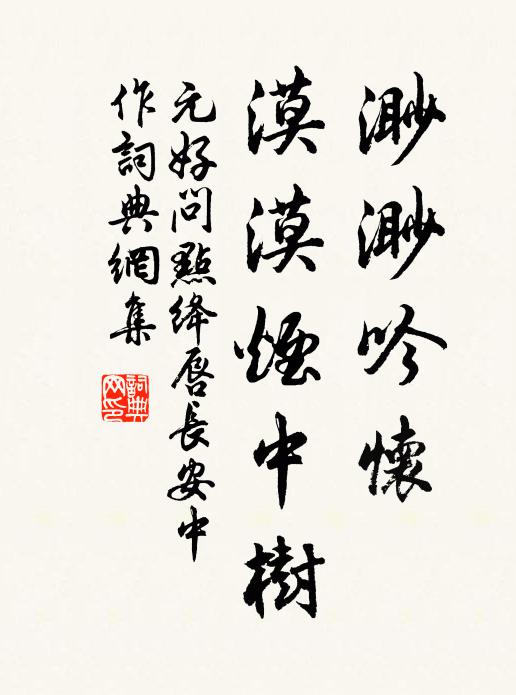 渺渺吟懷
漠漠煙中樹
元好問點絳唇長安中
作詞典網集
詞典
网印